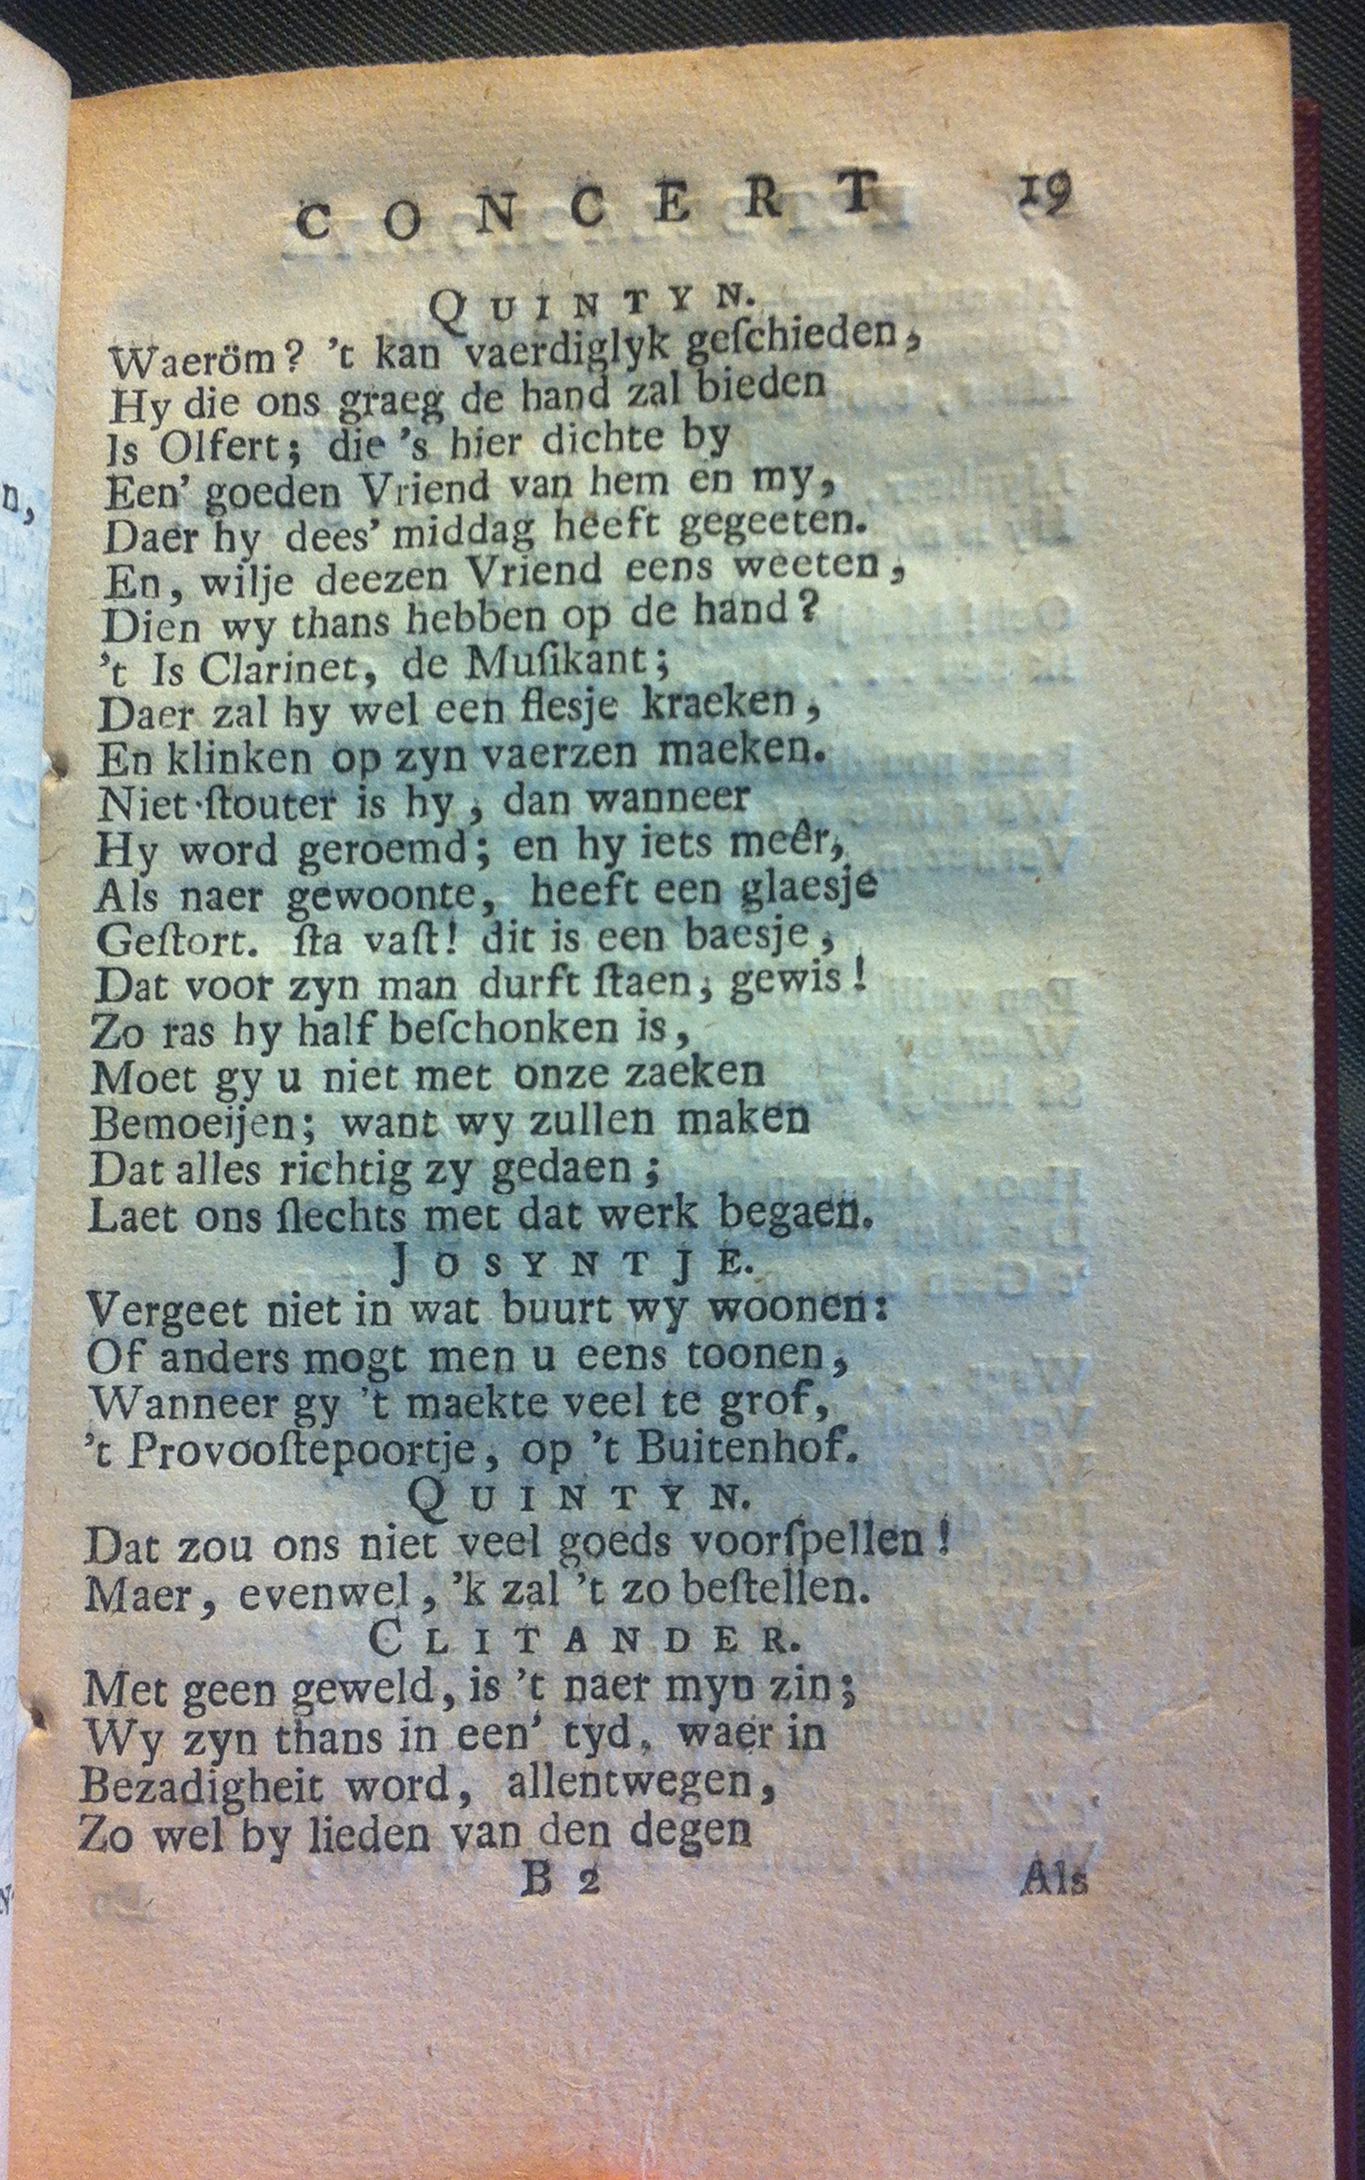 CONCERT 19
QUINTYN.
Waeröm? 't kan vaerdiglyk geſchieden,
Hy die ons graeg de hand zal bieden
Is Olfert; die 's hier dichte by
Een' goeden Vriend van hem en my,
Daer hy dees' middag heeft gegeeten.
En, wilje deezen Vriend eens weeten,
Dien wy thans hebben op de hand?
't Is Clarinet, de Muſikant;
Daer zal hy wel een flesje kraeken,
En klinken op zyn vaerzen maeken.
Niet ſtouter is hy, dan wanneer
Hy word geroemd; en hy iets meêr,
Als naer gewoonte, heeft een glaesje
Geſtort. ſta vaſt! dit is een baesje,
Dat voor zyn man durft ſtaen, gewis!
Zo ras hy half beſchonken is,
Moet gy u niet met onze zaeken
Bemoeijen; want wy zullen maken
Dat alles richtig zy gedaen;
Laet ons ſlechts met dat werk begaen.
JOSYNTJE.
Vergeet niet in wat buurt wy woonen:
Of anders mogt men u eens toonen,
Wanneer gy 't maekte veel te grof,
't Provooſtepoortje, op 't Buitenhof.
QUINTYN.
Dat zou ons niet veel goeds voorſpellen!
Maer, evenwel, 'k zal 't zo beſtellen.
CLITANDER.
Met geen geweld, is 't naer myn zin;
Wy zyn thans in een' tyd, waer in
Bezadigheit word, allentwegen,
Zo wel by lieden van den degen
B 2 Als